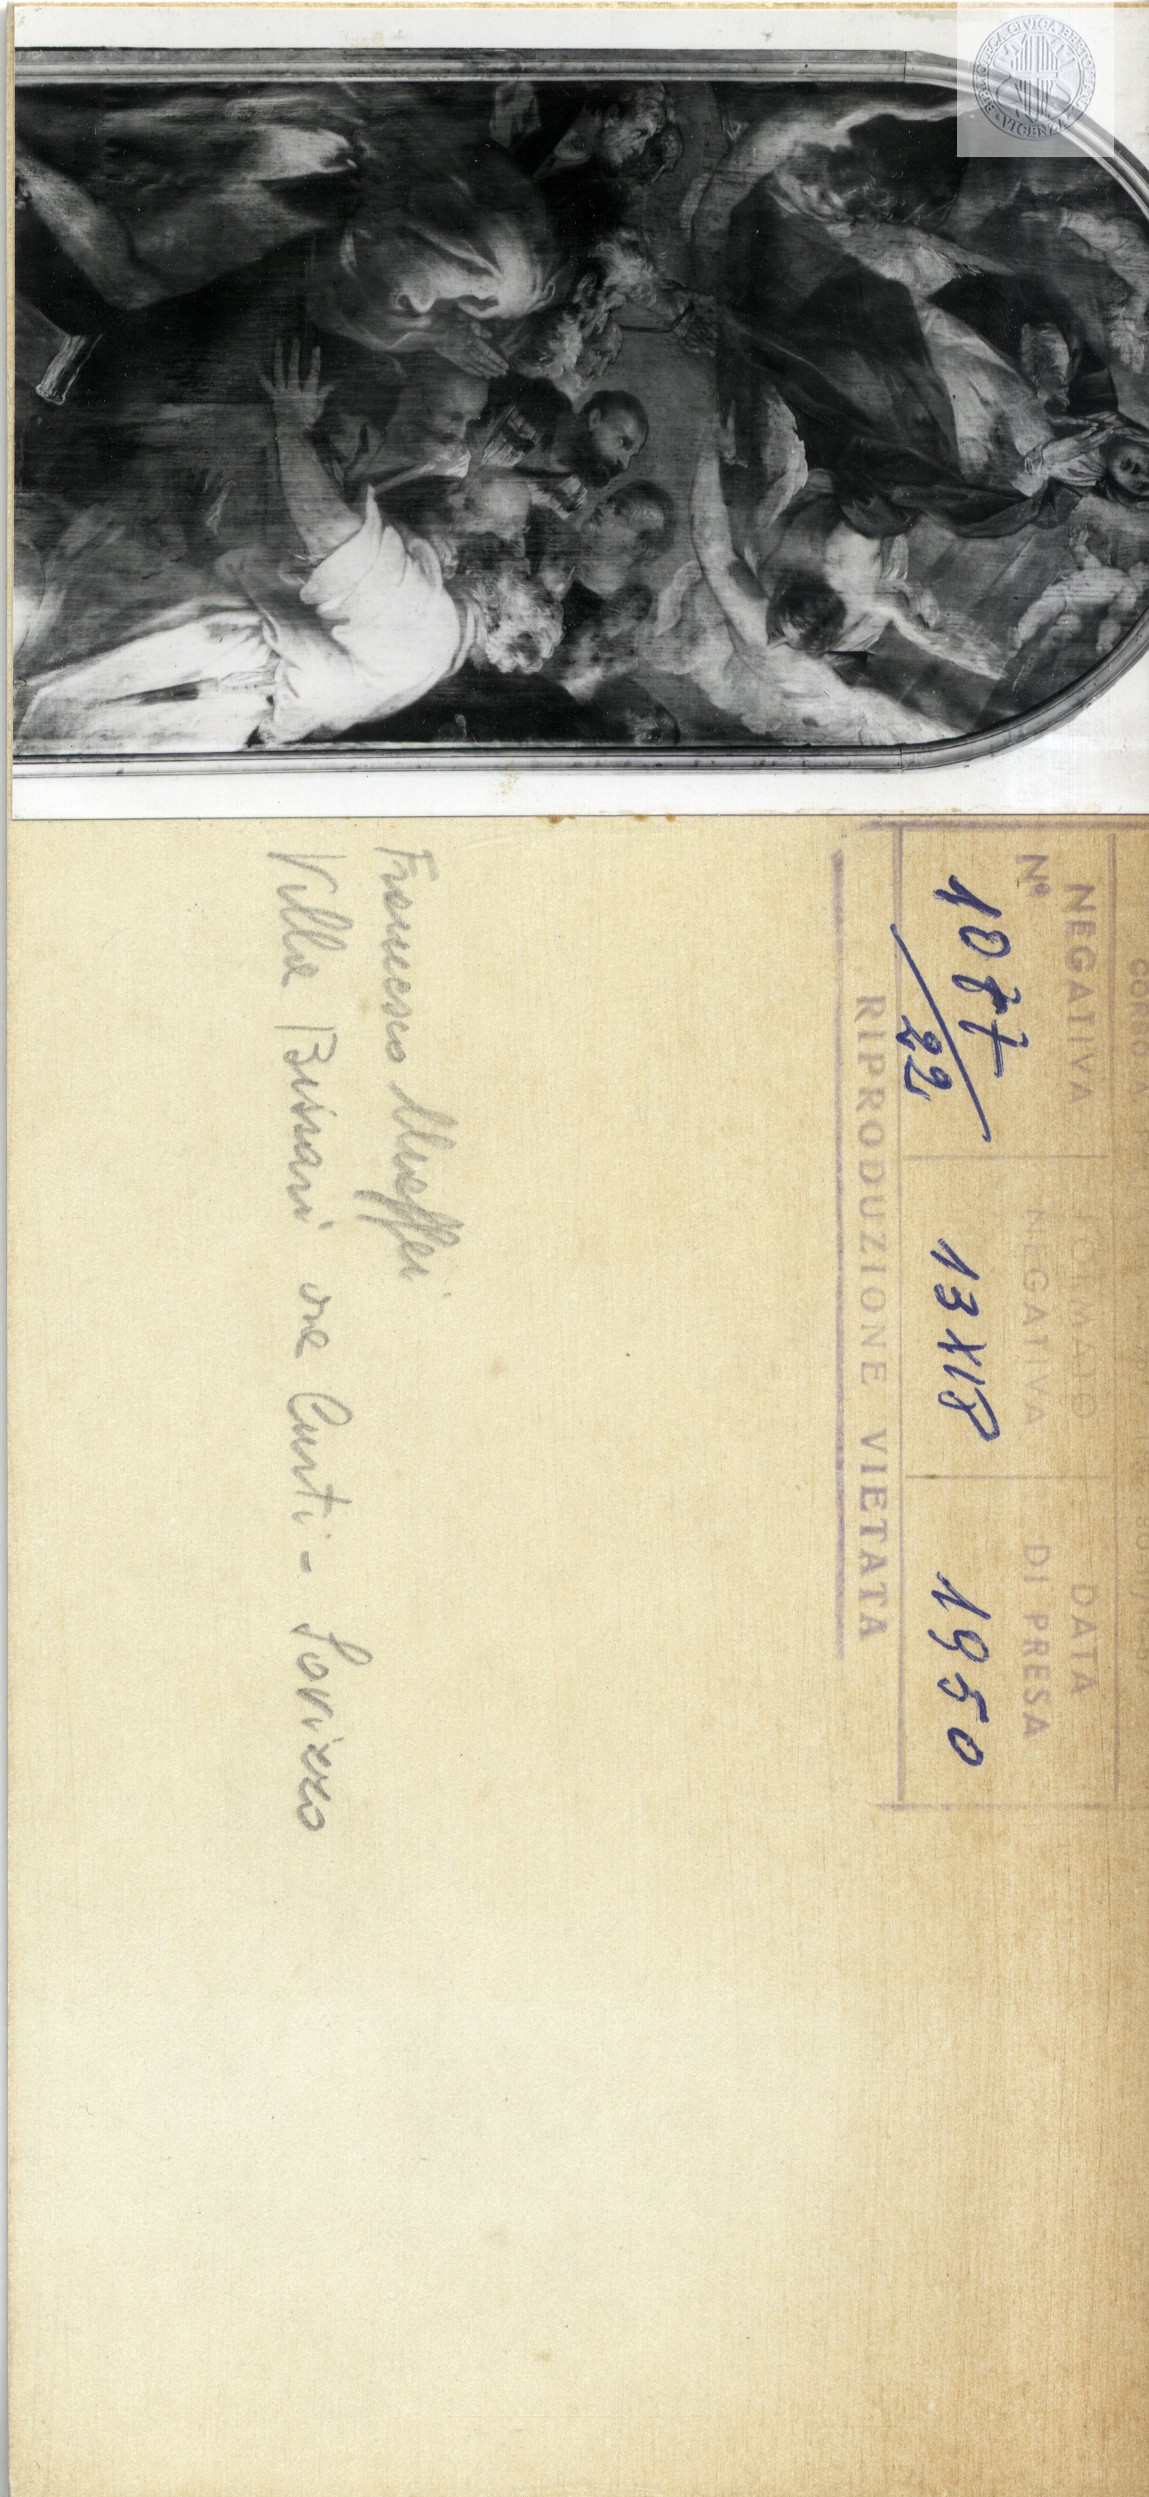 BIBLIOTECA CIVICA BERTOLIANA · VICENZA
CORSO A
NEGATIVA FORMATO DATA
Nº NEGATIVA DI PRESA
13X18 1950
22
RIPRODUZIONE VIETATA
Francesco Maffei
Villa Bissari ora Curti - Sovizzo